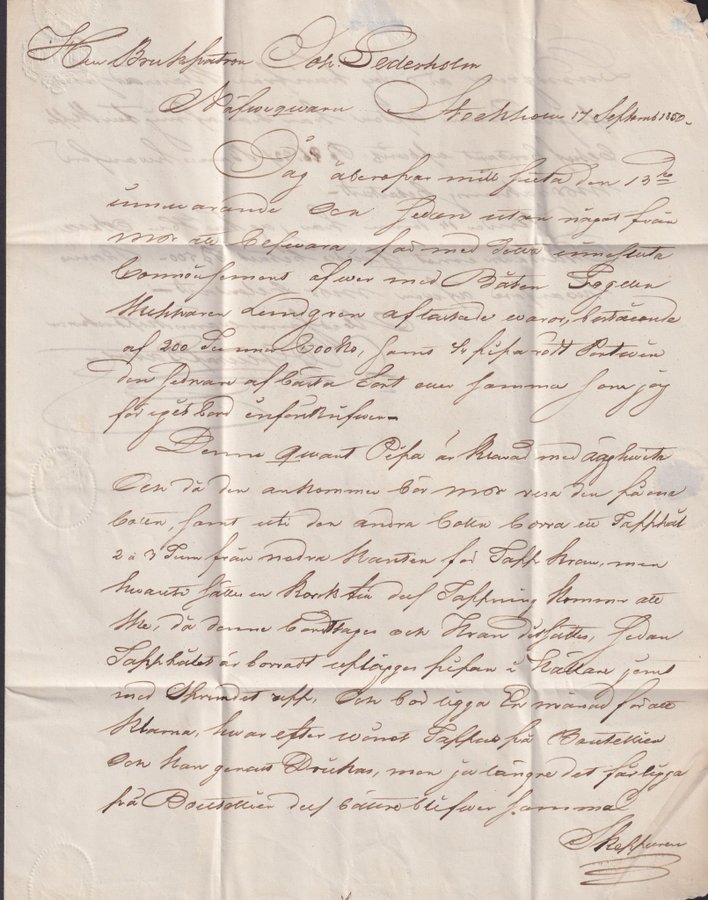 Herr Brukspatron Joh. Cederholm
Näfveqwarn Stockholm 17 Septemb 1850
Jag åberopar mitt sista den 13de
innevarande och sedan utan något från
mor att besvara, får med detta innesluta
Connoissement öfver med Båten
Skepparen Lundgren aflastade waror, bestående
af 200 Tunnor Cooks, samt pipa rött Portvin
den sednare af bästa Sort eller samma som jag
för eget bord införskrifver
Denne qwart Pipa är klarad med ägghwita
och då den ankommer bör mor resa den på ena
botten, samt uti den andra botten borra ett Tapphål
2 a 3 Tum från nedra kanten för Tapp Kran, men
hwaruti sättes en Kork till dess Tappning kommer att
ske, då denne borttages och Kran ditsättes, Sedan
Tapphålet är borradt upplägges pipan i Källare jemt
med Sprundet upp, och bör ligga En månad för att
klarna, hwarefter winet Tappas på Bouteillier
och kan genast Drickas, men ju längre det får ligga
på Bouteillier dess bättre blifwer samma
Skepparen